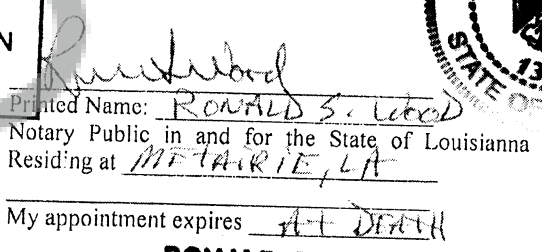 N
Printed Name: RONALD S. WOOD
Notary Public in and for the State of Louisianna
Residing at METAIRIE, LA
My appointment expires At DEATH
STATE OF
13